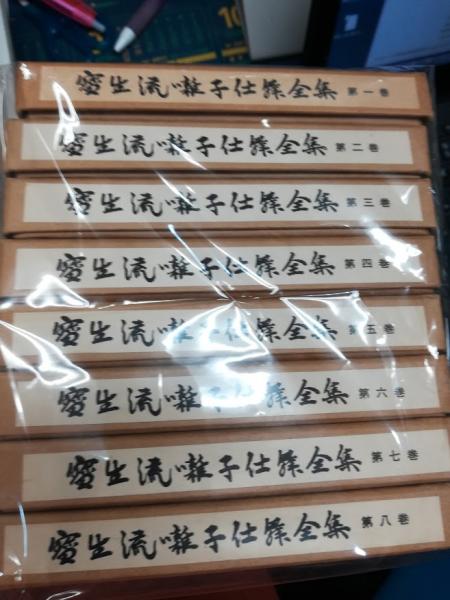 寶生流囃子仕舞全集 第一巻
寶生流囃子仕舞全集 第二巻
寶生流囃子仕舞全集 第三巻
寶生流囃子仕舞全集 第四巻
寶生流囃子仕舞全集 第五巻
寶生流囃子仕舞全集 第六巻
寶生流囃子仕舞全集 第七巻
寶生流囃子仕舞全集 第八巻